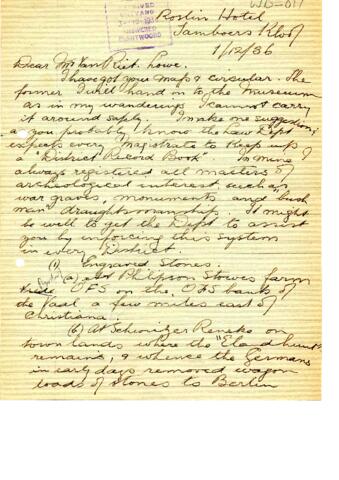 WD-011
Roslin Hotel
Tamboers Kloof
1/12/36
Dear Mr Van Riet Lowe.
I have got your map & circular. The
former I will hand on to the Museum
as in my wanderings I cannot carry
it around safely. I make one suggestion;
as you probably know the Law Dept
expects every Magistrate to keep up
a "District Record Book". In mine I
always registered all matters of
archeological interest such as
war graves, monuments and "bush
man" draughtsmanship. It might
be well to get the Dept to assist
you by enforcing this system
in every District.
(1) Engraved Stones.
(a) At Philipson Stowes farm
OFS on the OFS banks of
the Vaal a few miles east of
Christiana.
(b) At Schweizer Reneke on
town lands where the "Eland hunt"
remains, & whence the Germans
in early days removed wagon
loads of stones to Berlin